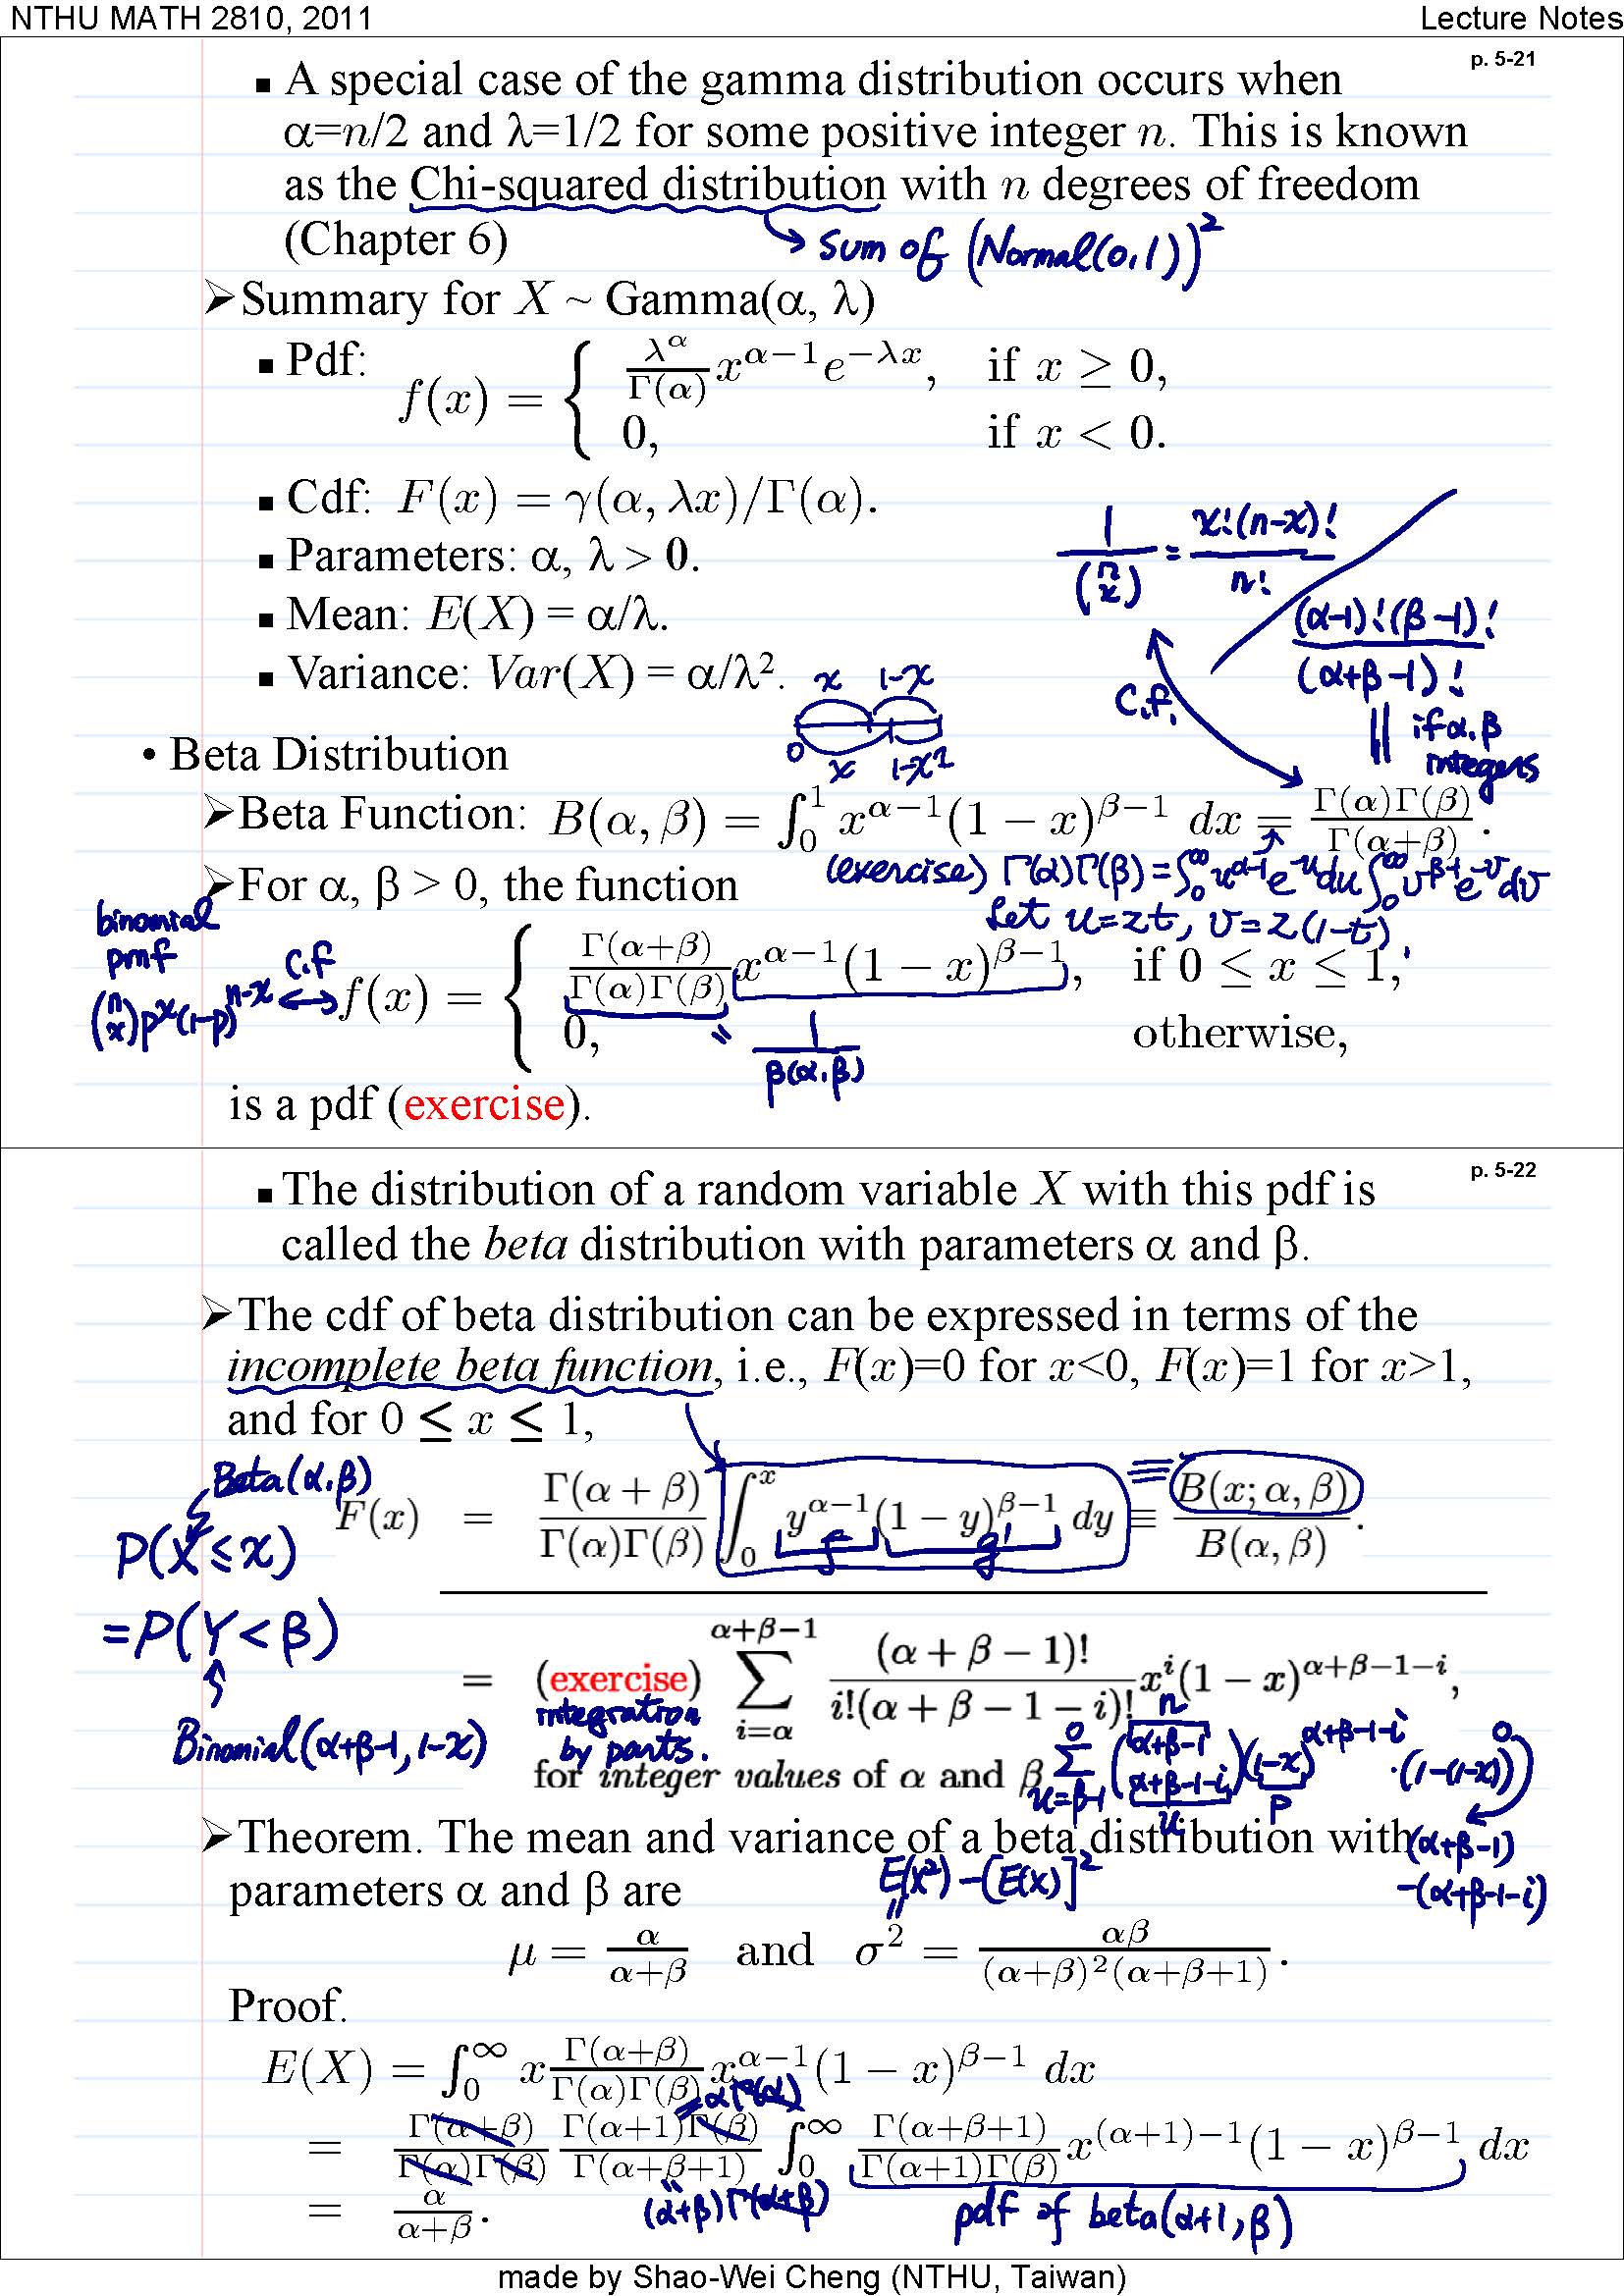 NTHU MATH 2810, 2011 Lecture Notes
p. 5-21
▪ A special case of the gamma distribution occurs when
α=n/2 and λ=1/2 for some positive integer n. This is known
as the Chi-squared distribution with n degrees of freedom
(Chapter 6)
→ sum of (Normal(0,1))²
➢ Summary for X ~ Gamma(α, λ)
▪ Pdf: f(x) = { λ^α/Γ(α) x^{α−1} e^{−λx}, if x ≥ 0,
0, if x < 0.
▪ Cdf: F(x) = γ(α, λx)/Γ(α).
▪ Parameters: α, λ > 0.
▪ Mean: E(X) = α/λ.
▪ Variance: Var(X) = α/λ².
1/(n x) = x!(n-x)!/n!
(α-1)!(β-1)!/(α+β-1)!
|| if α, β
integers
c.f.
x 1-x
0
x 1-x²
• Beta Distribution
➢ Beta Function: B(α, β) = ∫_0^1 x^{α−1}(1 − x)^{β−1} dx = Γ(α)Γ(β)/Γ(α+β).
(exercise) Γ(α)Γ(β) = ∫_0^∞ u^{α-1}e^{-u}du ∫_0^∞ v^{β-1}e^{-v}dv
Let u=zt, v=z(1-t),
➢ For α, β > 0, the function
binomial
pmf
(n x)p^x(1-p)^{n-x} c.f ↔ f(x) = { Γ(α+β)/(Γ(α)Γ(β)) x^{α−1}(1 − x)^{β−1}, if 0 ≤ x ≤ 1,
0, otherwise,
= 1/β(α,β)
is a pdf (exercise).
p. 5-22
▪ The distribution of a random variable X with this pdf is
called the beta distribution with parameters α and β.
➢ The cdf of beta distribution can be expressed in terms of the
incomplete beta function, i.e., F(x)=0 for x<0, F(x)=1 for x>1,
and for 0 ≤ x ≤ 1,
Beta(α,β)
F(x) = Γ(α + β)/(Γ(α)Γ(β)) ∫_0^x y^{α−1}(1 − y)^{β−1} dy ≡ B(x; α, β)/B(α, β).
f g'
P(X≤x)
=P(Y<β)
Binomial(α+β-1, 1-x)
= (exercise) Σ_{i=α}^{α+β−1} (α + β − 1)!/(i!(α + β − 1 − i)!) x^i(1 − x)^{α+β−1−i},
integration
by parts.
for integer values of α and β
n
Σ_{u=β-1}^{0} (α+β-1 α+β-1-i)(1-x)^{α+β-1-i}·(1-(1-x))
u p
(α+β-1)
-(α+β-1-i)
➢ Theorem. The mean and variance of a beta distribution with
parameters α and β are
E(X²)-[E(X)]²
||
μ = α/(α+β) and σ² = αβ/((α+β)²(α+β+1)).
Proof.
E(X) = ∫_0^∞ x Γ(α+β)/(Γ(α)Γ(β)) x^{α−1}(1 − x)^{β−1} dx
=αΓ(α)
= Γ(α+β)/(Γ(α)Γ(β)) Γ(α+1)Γ(β)/Γ(α+β+1) ∫_0^∞ Γ(α+β+1)/(Γ(α+1)Γ(β)) x^{(α+1)−1}(1 − x)^{β−1} dx
(α+β)Γ(α+β) pdf of beta(α+1, β)
= α/(α+β).
made by Shao-Wei Cheng (NTHU, Taiwan)